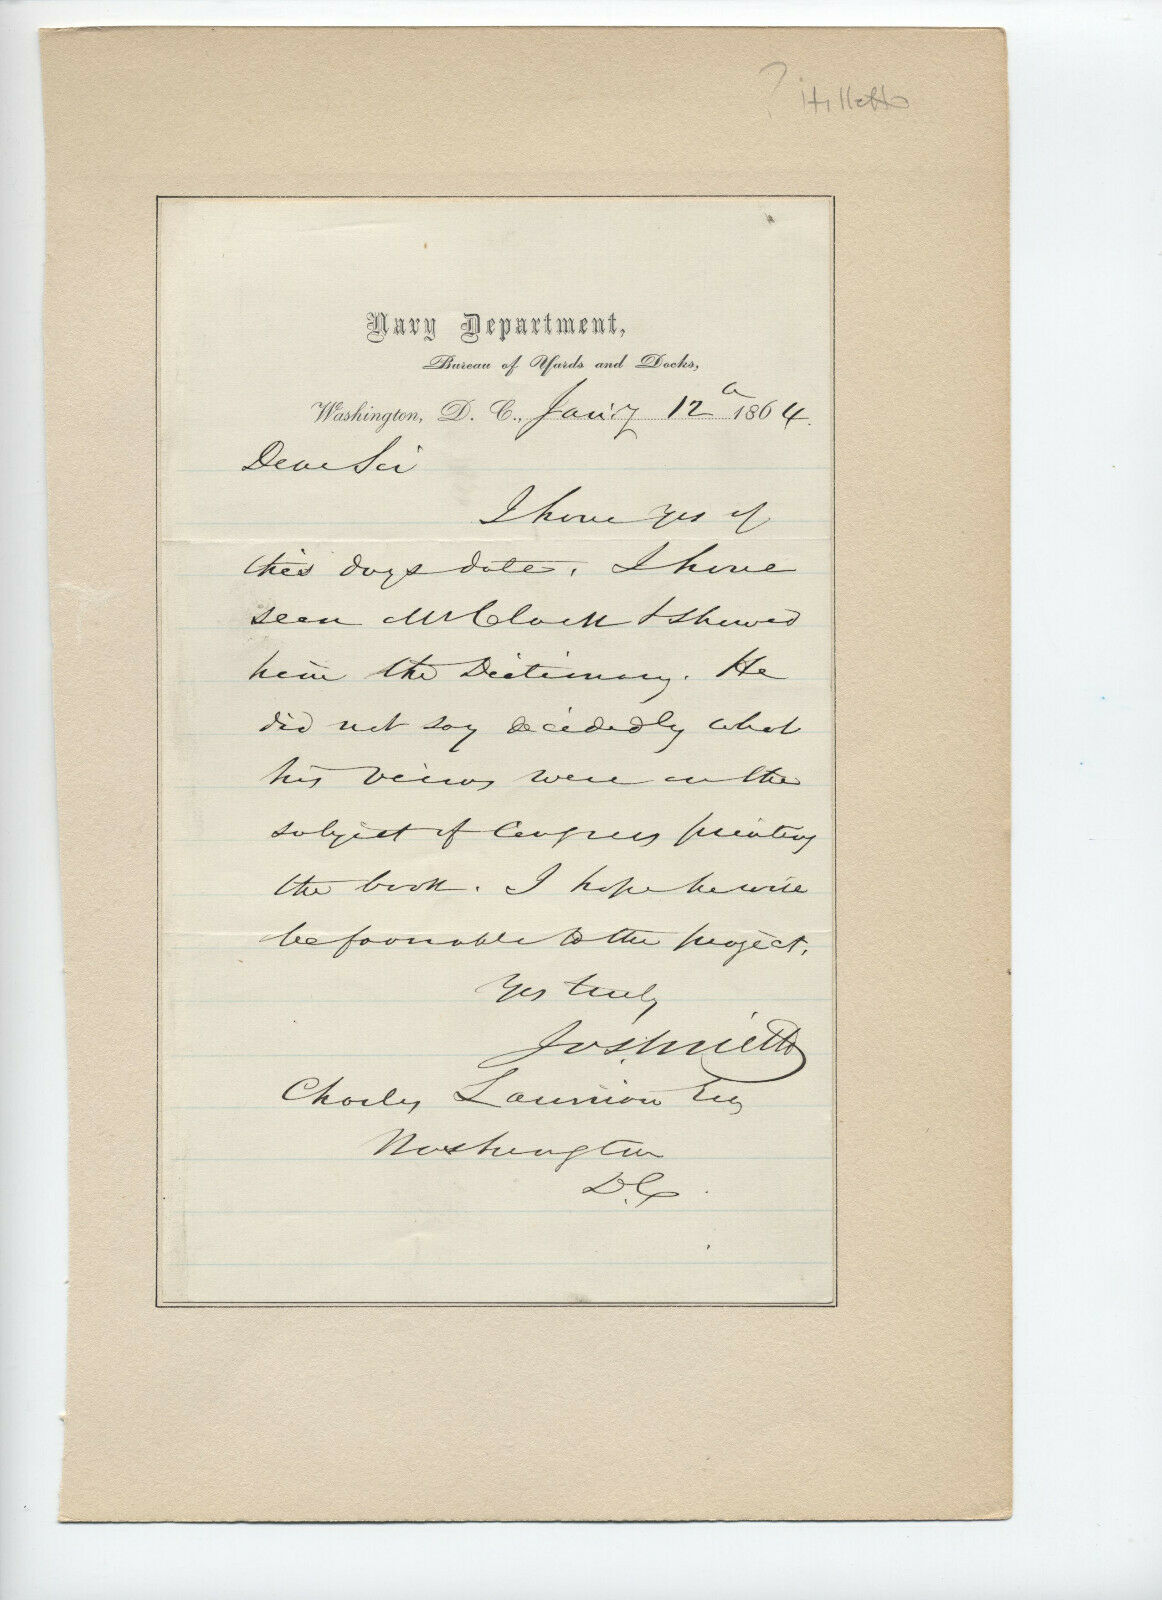 Navy Department,
Bureau of Yards and Docks,
Washington, D. C., Jan'y 12th 1864.
Dear Sir
I have yrs of
this days date. I have
seen Mr Clark & shewed
him the Dictionary. He
did not say decidedly what
his views were on the
subject of Congress printing
the book. I hope he will
be favorable to the project.
Yrs truly
Jos Smith
Charles
Esq
Washington
D.C.